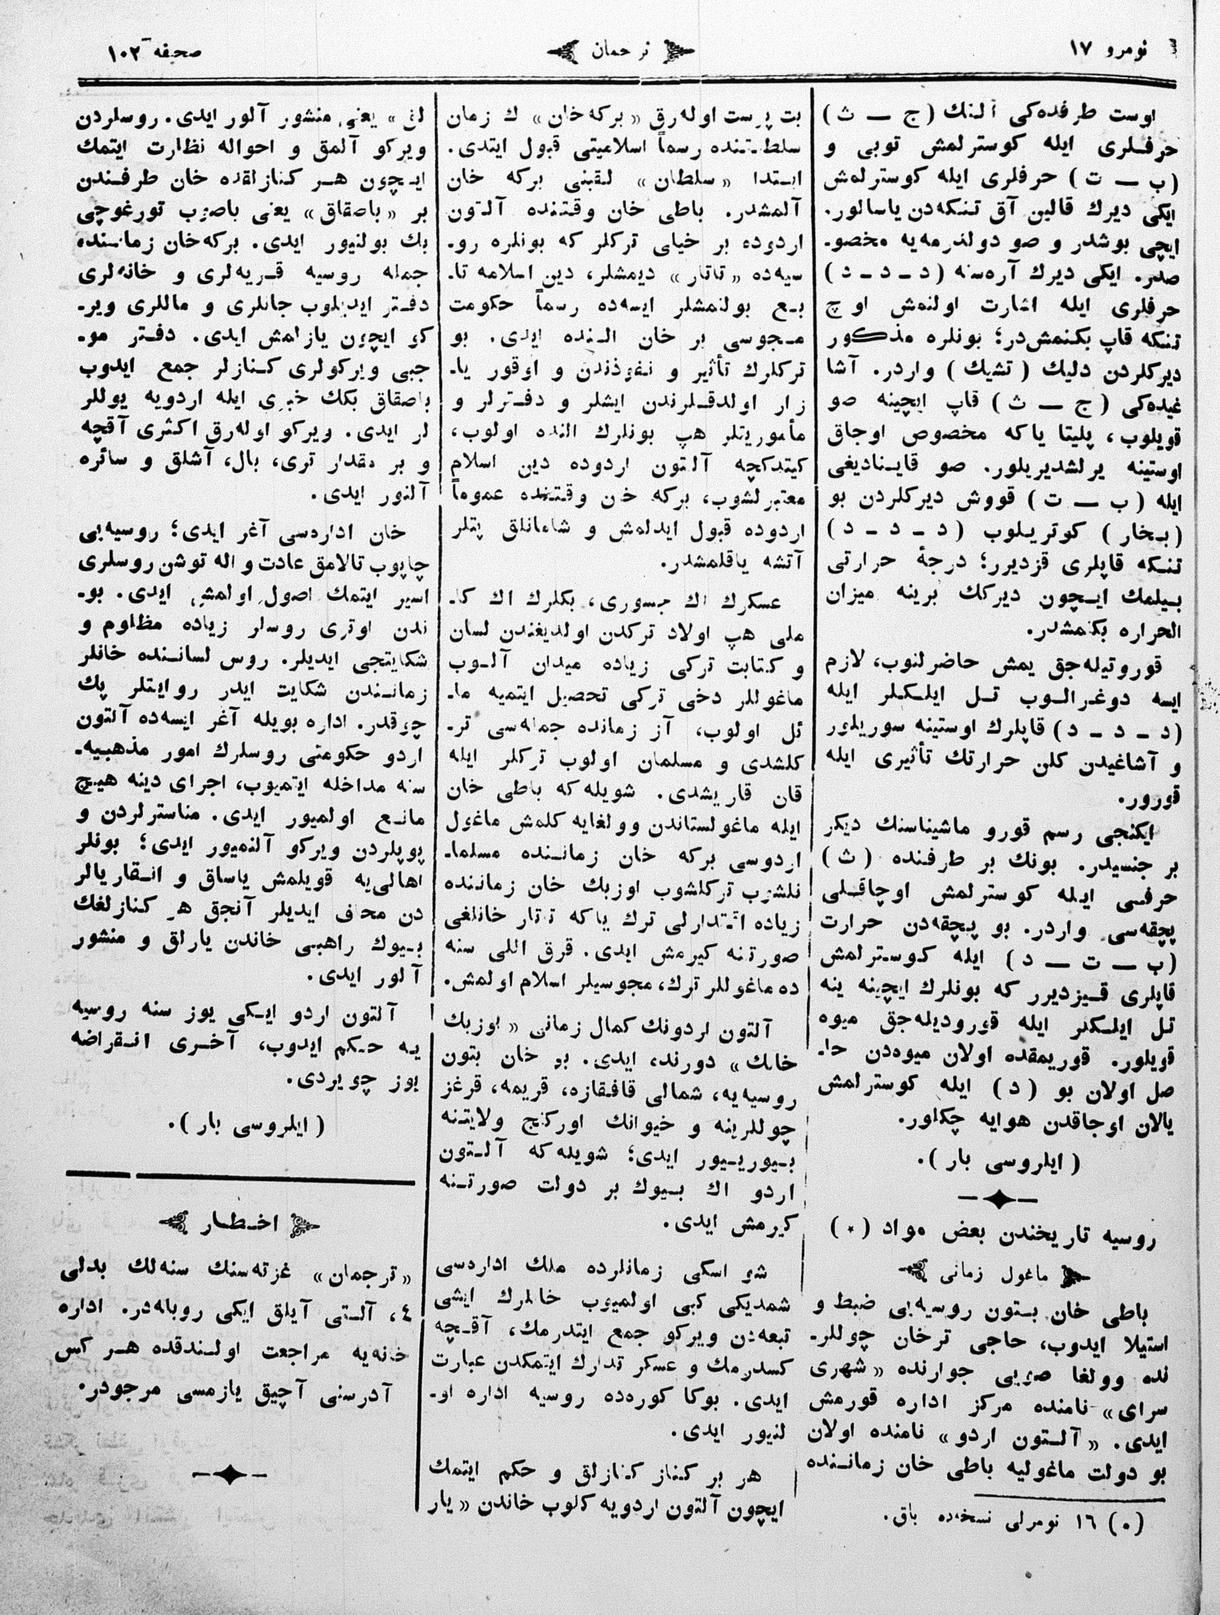 نومرو ١٧
ترجمان
صحیفه ١٠٢
اوست طرفده‌کی آلتنك (ج — ث)
حرفلری ایله کوسترلمش توبی و
(ب — ت) حرفلری ایله کوسترلمش
ایکی دیرك قالین آق تنکه‌دن یاسالور.
ایچی بوشدر و صو دولدرمه‌یه مخصو-
صدر. ایکی دیرك آره‌سنه (د - د - د)
حرفلری ایله اشارت اولنمش اوچ
تنکه قاپ بکنمش‌در؛ بونلره مذکور
دیرکلردن دلیك (تشیك) واردر. آشا
غیده‌کی (ج — ث) قاپ ایچینه صو
قویلوب، پلیتا یاکه مخصوص اوجاق
اوستینه یرلشدیریلور. صو قاینادیغی
ایله (ب — ت) قووش دیرکلردن بو
(بخار) کوتریلوب (د - د - د)
تنکه قاپلری قزدیرر؛ درجۀ حرارتی
بیلمك ایچون دیرکك برینه میزان
الحراره بکنمشدر.
قوروتیله‌جق یمش حاضرلنوب، لازم
ایسه دوغرالوب تل ایلکلر ایله
(د - د - د) قاپلرك اوستینه سوریلور
و آشاغیدن کلن حرارتك تأثیری ایله
قورور.
ایکنجی رسم قورو ماشیناسنك دیکر
بر جنسیدر. بونك بر طرفنده (ث)
حرفسی ایله کوسترلمش اوچاقلی
پچقه‌سی واردر. بو پچقه‌دن حرارت
(ب — ت — د) ایله کوسترلمش
قاپلری قیزدیرر که بونلرك ایچینه ینه
تل ایلکلر ایله قورودیله‌جق میوه
قویلور. قوریمقده اولان میوه‌دن حا-
صل اولان بو (د) ایله کوسترلمش
یالان اوجاقدن هوایه چکلور.
(ایلروسی بار).
روسیه تاریخندن بعض مواد (*)
ماغول زمانی
باطی خان بتون روسیه‌یی ضبط و
استیلا ایدوب، حاجی ترخان چوللر-
نده وولغا صویی جوارنده «شهری
سرای» نامنده مرکز اداره قورمش
ایدی. «آلتون اردو» نامنده اولان
بو دولت ماغولیه باطی خان زماننده
(*) ١٦ نومرلی نسخه‌ده باق.
بت پرست اوله‌رق «برکه خان» ك زمان
سلطنتنده رسماً اسلامیتی قبول ایتدی.
ابتدا «سلطان» لقبنی برکه خان
آلمشدر. باطی خان وقتنده آلتون
اردوده بر خیلی ترکلر که بونلره رو-
سیه‌ده «تاتار» دیمشلر، دین اسلامه تا-
بع بولنمشلر ایسه‌ده رسماً حکومت
مجوسی بر خان النده ایدی. بو
ترکلرك تأثیر و نفوذندن و اوقور یا-
زار اولدقلرندن ایشلر و دفترلر و
مأموریتلر هپ بونلرك النده اولوب،
کیتدکچه آلتون اردوده دین اسلام
معتبرلشوب، برکه خان وقتنده عموماً
اردوده قبول ایدلمش و شامانلق پتلر
آتشه یاقلمشدر.
عسکرك اك جسوری، بکلرك اك کا-
ملی هپ اولاد ترکدن اولدیغندن لسان
و کتابت ترکی زیاده میدان آلوب
ماغوللر دخی ترکی تحصیل ایتمیه ما-
ئل اولوب، آز زمانده جمله‌سی تر-
کلشدی و مسلمان اولوب ترکلر ایله
قان قاریشدی. شویله که باطی خان
ایله ماغولستاندن وولغایه کلمش ماغول
اردوسی برکه خان زماننده مسلما-
نلشوب ترکلشوب اوزبك خان زماننده
زیاده اقتدارلی ترك یاکه تاتار خانلغی
صورتنه کیرمش ایدی. قرق اللی سنه
ده ماغوللر ترك، مجوسیلر اسلام اولمش.
آلتون اردونك کمال زمانی «اوزبك
خانك» دورند، ایدی. بو خان بتون
روسیه‌یه، شمالی قافقازه، قریمه، قرغز
چوللرینه و خیوانك اورکنج ولایتنه
بیوریور ایدی؛ شویله که آلتون
اردو اك بیوك بر دولت صورتنه
کیرمش ایدی.
شو اسکی زمانلرده ملك اداره‌سی
شمدیکی کبی اولمیوب خانلرك ایشی
تبعه‌دن ویرکو جمع ایتدرمك، آقچه
کسدرمك و عسکر تدارك ایتمکدن عبارت
ایدی. بوکا کوره‌ده روسیه اداره او-
لنیور ایدی.
هر بر کناز کنازلق و حکم ایتمك
ایچون آلتون اردویه کلوب خاندن «یار
لق» یعنی منشور آلور ایدی. روسلردن
ویرکو آلمق و احواله نظارت ایتمك
ایچون هر کنازلقده خان طرفندن
بر «باصقاق» یعنی باصوب تورغوچی
بك بولنیور ایدی. برکه خان زماننده
جمله روسیه قریه‌لری و خانه‌لری
دفتر ایدیلوب جانلری و ماللری ویر-
کو ایچون یازلمش ایدی. دفتر مو-
جبی ویرکولری کنازلر جمع ایدوب
باصقاق بكك خبری ایله اردویه یوللر
لر ایدی. ویرکو اوله‌رق اکثری آقچه
و بر مقدار تری، بال، آشلق و سائره
آلنور ایدی.
خان اداره‌سی آغر ایدی؛ روسیه‌یی
چاپوب تالامق عادت و اله توشن روسلری
اسیر ایتمك اصول اولمش ایدی. بو-
ندن اوتری روسلر زیاده مظلوم و
شکایتجی ایدیلر. روس لساننده خانلر
زمانندن شکایت ایدر روایتلر پك
چوقدر. اداره بویله آغر ایسه‌ده آلتون
اردو حکومتی روسلرك امور مذهبیه-
سنه مداخله ایتمیوب، اجرای دینه هیچ
مانع اولمیور ایدی. مناسترلردن و
پوپلردن ویرکو آلنمیور ایدی؛ بونلر
اهالی‌یه قویلمش یاساق و انقاریالر
دن معاف ایدیلر آنجق هر کنازلغك
بیوك راهبی خاندن یارلق و منشور
آلور ایدی.
آلتون اردو ایکی یوز سنه روسیه
یه حکم ایدوب، آخری انقراضه
یوز چویردی.
(ایلروسی بار).
اخطار
«ترجمان» غزته‌سنك سنه‌لك بدلی
٤، آلتی آیلق ایکی روبله‌در. اداره
خانه‌یه مراجعت اولندقده هر کس
آدرسنی آچیق یازمسی مرجودر.